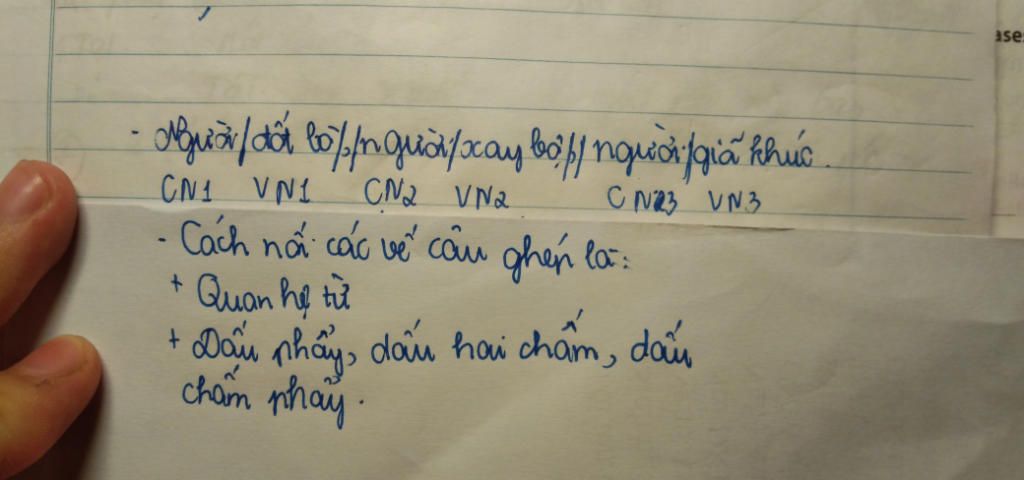 - Người/đốt bờ,//người/xay bột,//người/giã khúc.
CN1 VN1 CN2 VN2 CN3 VN3
- Cách nối các vế câu ghép là:
+ Quan hệ từ
+ Dấu phẩy, dấu hai chấm, dấu
chấm phẩy.